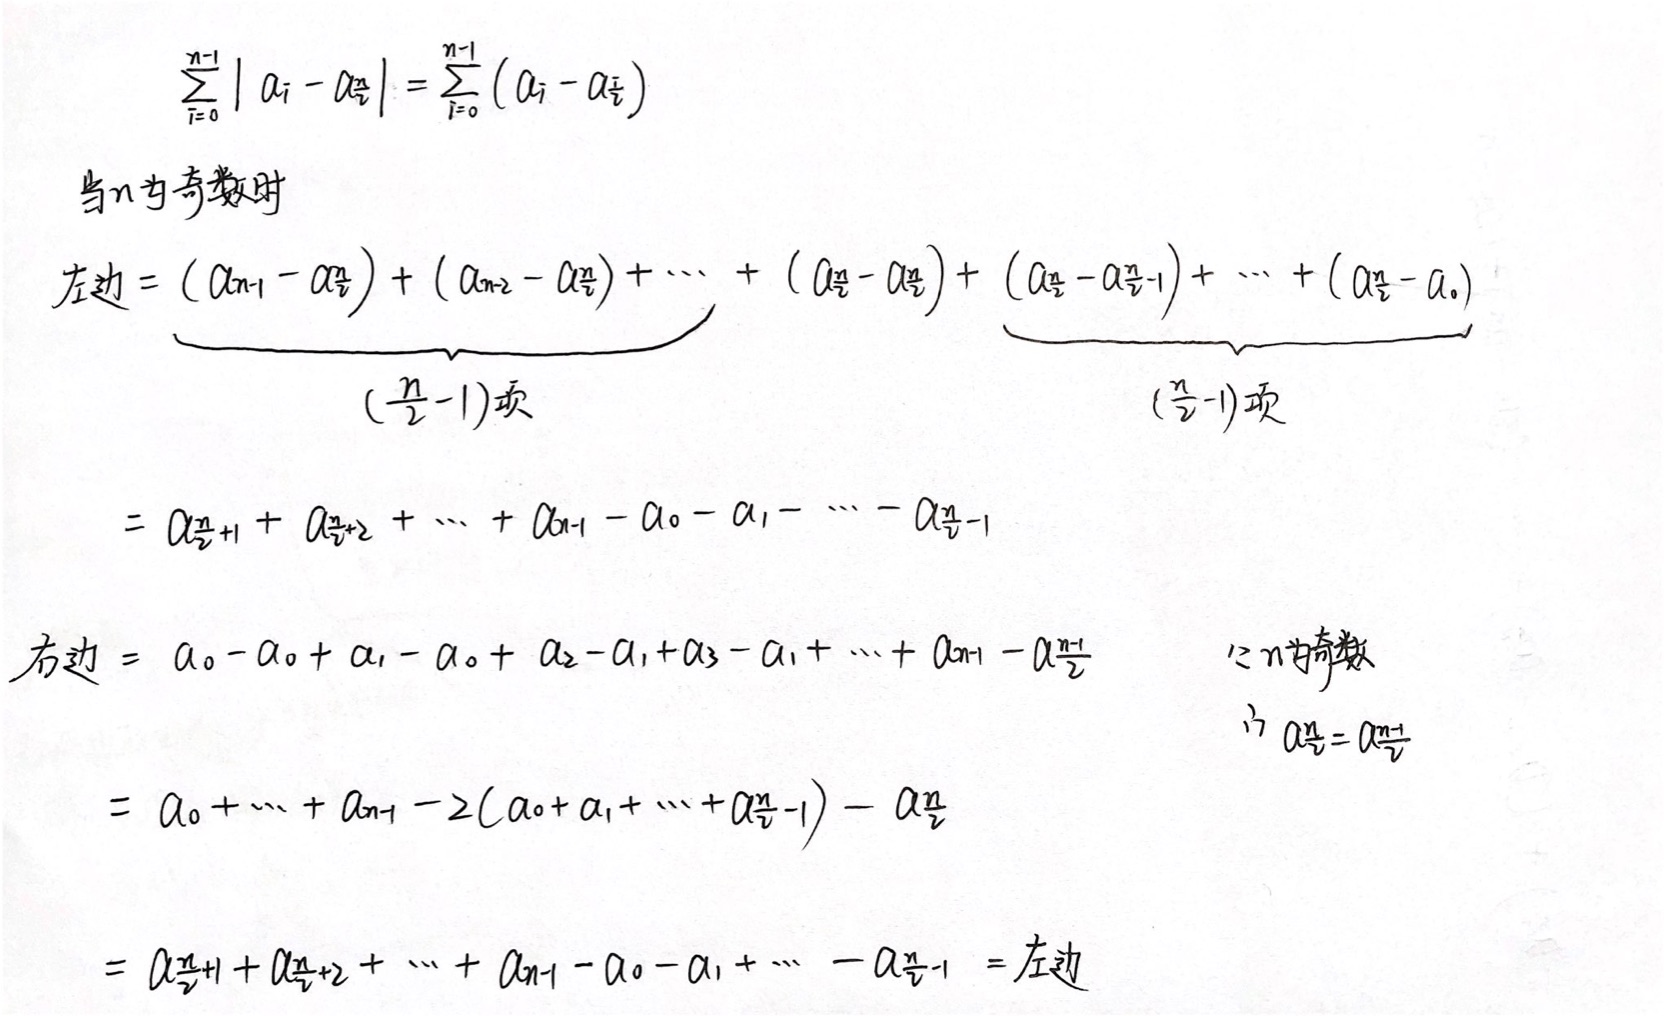 $\sum_{i=0}^{n-1} | a_i - a_{\frac{n}{2}} | = \sum_{i=0}^{n-1} ( a_i - a_{\frac{i}{2}} )$
当n为奇数时
左边 = $(a_{n-1} - a_{\frac{n}{2}}) + (a_{n-2} - a_{\frac{n}{2}}) + \cdots + (a_{\frac{n}{2}} - a_{\frac{n}{2}}) + (a_{\frac{n}{2}} - a_{\frac{n}{2}-1}) + \cdots + (a_{\frac{n}{2}} - a_0)$
$(\frac{n}{2}-1)$项 $(\frac{n}{2}-1)$项
$= a_{\frac{n}{2}+1} + a_{\frac{n}{2}+2} + \cdots + a_{n-1} - a_0 - a_1 - \cdots - a_{\frac{n}{2}-1}$
右边 = $a_0 - a_0 + a_1 - a_0 + a_2 - a_1 + a_3 - a_1 + \cdots + a_{n-1} - a_{\frac{n-1}{2}}$ ∵ n为奇数
∴ $a_{\frac{n}{2}} = a_{\frac{n-1}{2}}$
$= a_0 + \cdots + a_{n-1} - 2(a_0 + a_1 + \cdots + a_{\frac{n}{2}-1}) - a_{\frac{n}{2}}$
$= a_{\frac{n}{2}+1} + a_{\frac{n}{2}+2} + \cdots + a_{n-1} - a_0 - a_1 + \cdots - a_{\frac{n}{2}-1}$ = 左边